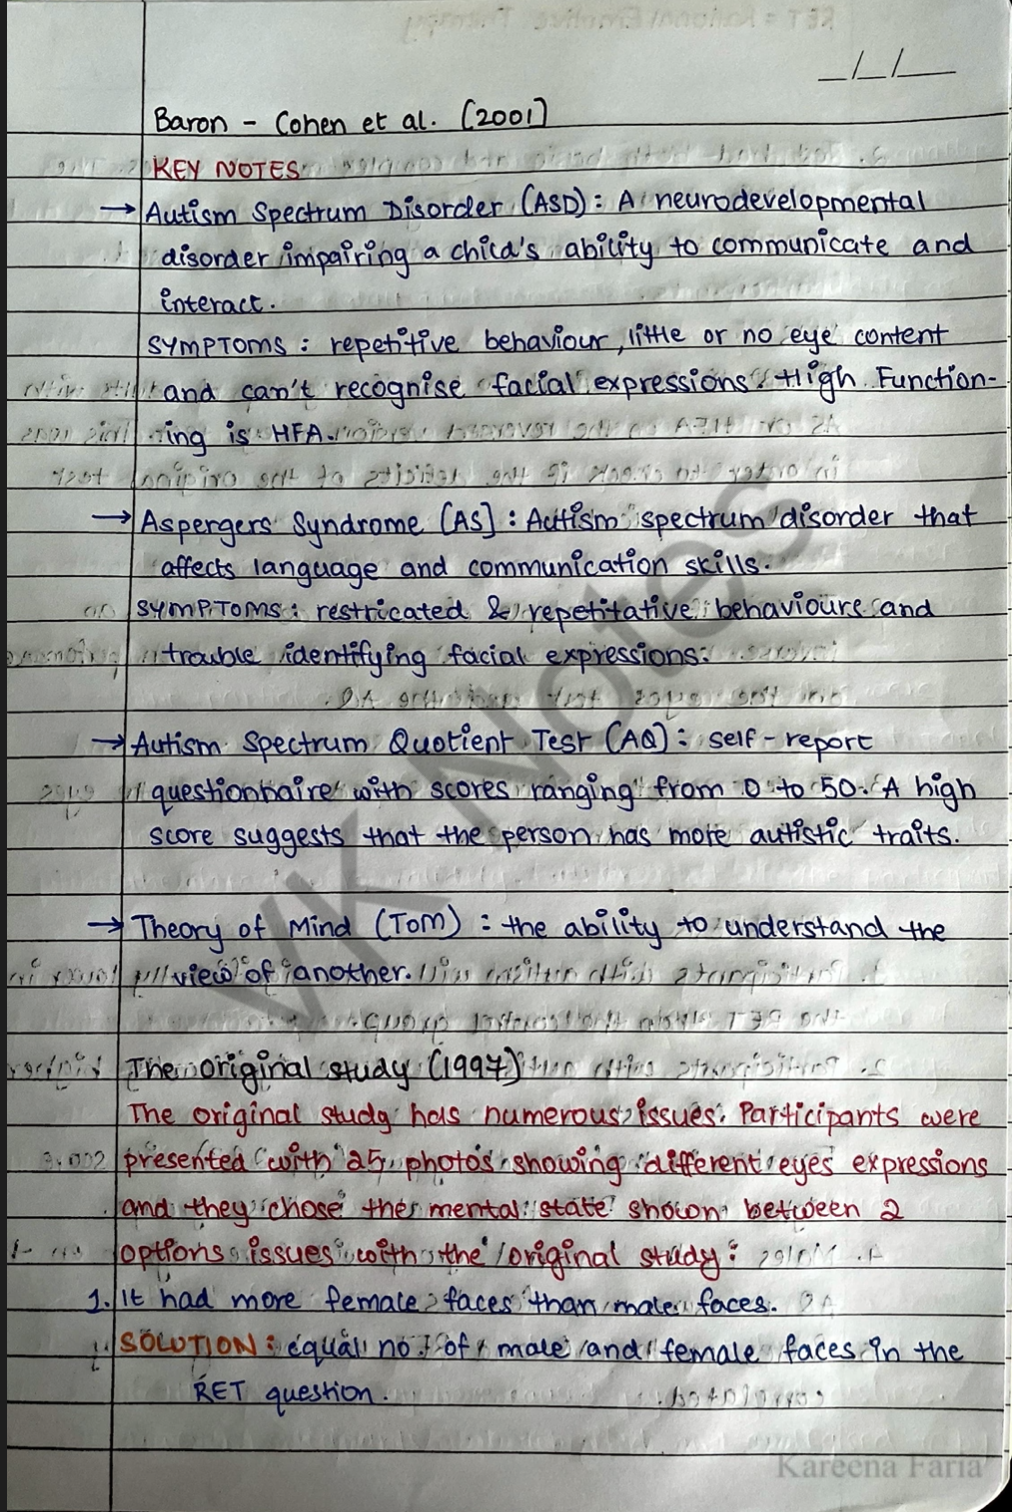 __/__/____
Baron - Cohen et al. (2001)
KEY NOTES
→ Autism Spectrum Disorder (ASD): A neurodevelopmental
disorder impairing a child's ability to communicate and
interact.
SYMPTOMS: repetitive behaviour, little or no eye content
and can't recognise facial expressions. High Function-
ing is HFA.
→ Aspergers Syndrome (AS): Autism spectrum disorder that
affects language and communication skills.
SYMPTOMS: restricated & repetitative behaviours and
trouble identifying facial expressions.
→ Autism Spectrum Quotient Test (AQ): self-report
questionnaire with scores ranging from 0 to 50. A high
score suggests that the person has more autistic traits.
→ Theory of Mind (ToM): the ability to understand the
view of another.
The original study (1997)
The original study has numerous issues. Participants were
presented with 25 photos showing different eyes expressions
and they chose the mental state shown between 2
options issues with the original study:
1. It had more female faces than male faces.
SOLUTION: equal no. of male and female faces in the
RET question.
VK Notes
Kareena Faria